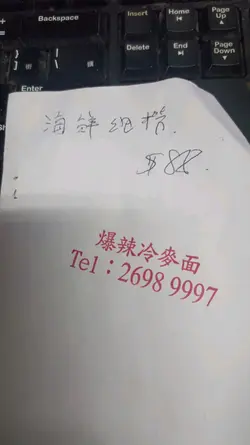 Backspace
Insert
Home
Page
Up
Delete
End
Page
Down
Enter
海鮮
$88.
爆辣冷麥面
Tel：2698 9997